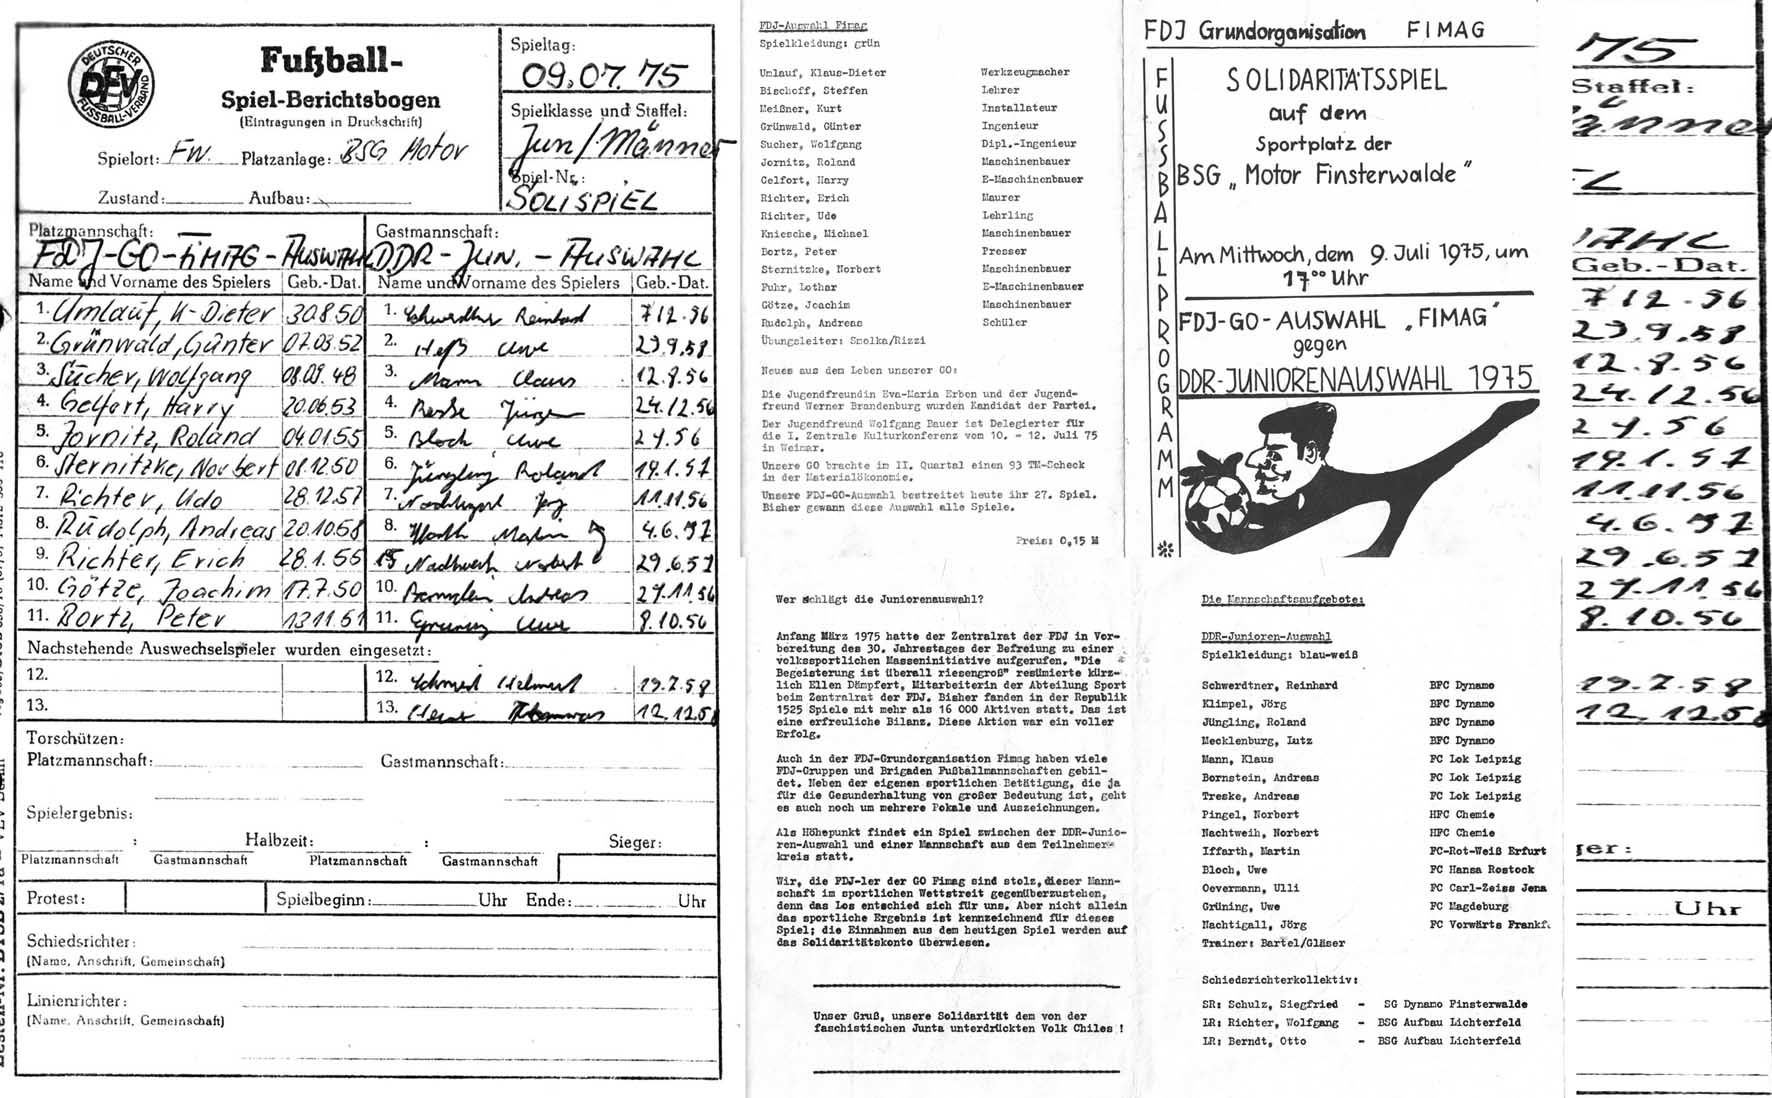 DEUTSCHER
DFV
FUSSBALL-VERBAND
Fußball-
Spiel-Berichtsbogen
(Eintragungen in Druckschrift)
Spielort: FW. Platzanlage: BSG Motor
Zustand: Aufbau:
Spieltag:
09.07.75
Spielklasse und Staffel:
Jun/Männer
Spiel-Nr.:
SOLISPIEL
Platzmannschaft: Gastmannschaft:
FDJ-GO-FIMAG-AUSWAHL DDR-JUN.-AUSWAHL
Name und Vorname des Spielers Geb.-Dat. Name und Vorname des Spielers Geb.-Dat.
1. Umlauf, K-Dieter 30.8.50 1. Schwerdtner Reinhard 7.12.56
2. Grünwald, Günter 07.03.52 2. Heß Uwe 23.9.58
3. Sucher, Wolfgang 08.09.48 3. Mann Claus 12.8.56
4. Gelfort, Harry 20.06.53 4. Jürgen 24.12.56
5. Jornitz, Roland 04.01.55 5. Bloch Uwe 2.4.56
6. Sternitzke, Norbert 08.12.50 6. Jüngling Roland 19.1.57
7. Richter, Udo 28.12.57 7. Nachtigall Jörg 11.11.56
8. Rudolph, Andreas 20.10.58 8. Martin 4.6.57
9. Richter, Erich 28.1.55 15 Nachtweih Norbert 29.6.57
10. Götze, Joachim 17.7.50 10. Andreas 27.11.56
11. Bortz, Peter 13.11.51 11. Grüning Uwe 8.10.56
Nachstehende Auswechselspieler wurden eingesetzt:
12. 12. Schmidt Helmut 19.7.58
13. 13. 12.12.58
Torschützen:
Platzmannschaft: Gastmannschaft:
Spielergebnis:
: Halbzeit: : Sieger:
Platzmannschaft Gastmannschaft Platzmannschaft Gastmannschaft
Protest: Spielbeginn: Uhr Ende: Uhr
Schiedsrichter:
(Name, Anschrift, Gemeinschaft)
Linienrichter:
(Name, Anschrift, Gemeinschaft)
FDJ-Auswahl Fimag
Spielkleidung: grün
Umlauf, Klaus-Dieter Werkzeugmacher
Bischoff, Steffen Lehrer
Meißner, Kurt Installateur
Grünwald, Günter Ingenieur
Sucher, Wolfgang Dipl.-Ingenieur
Jornitz, Roland Maschinenbauer
Gelfort, Harry E-Maschinenbauer
Richter, Erich Maurer
Richter, Udo Lehrling
Kniesche, Michael Maschinenbauer
Bortz, Peter Presser
Sternitzke, Norbert Maschinenbauer
Fuhr, Lothar E-Maschinenbauer
Götze, Joachim Maschinenbauer
Rudolph, Andreas Schüler
Übungsleiter: Smolka/Rizzi
Neues aus dem Leben unserer GO:
Die Jugendfreundin Eva-Maria Erben und der Jugend-
freund Werner Brandenburg wurden Kandidat der Partei.
Der Jugendfreund Wolfgang Bauer ist Delegierter für
die I. Zentrale Kulturkonferenz vom 10. - 12. Juli 75
in Weimar.
Unsere GO brachte im II. Quartal einen 93 TM-Scheck
in der Materialökonomie.
Unsere FDJ-GO-Auswahl bestreitet heute ihr 27. Spiel.
Bisher gewann diese Auswahl alle Spiele.
Preis: 0,15 M
Wer schlägt die Juniorenauswahl?
Anfang März 1975 hatte der Zentralrat der FDJ in Vor-
bereitung des 30. Jahrestages der Befreiung zu einer
volkssportlichen Masseninitiative aufgerufen. "Die
Begeisterung ist überall riesengroß" resümierte kürz-
lich Ellen Dämpfert, Mitarbeiterin der Abteilung Sport
beim Zentralrat der FDJ. Bisher fanden in der Republik
1525 Spiele mit mehr als 16 000 Aktiven statt. Das ist
eine erfreuliche Bilanz. Diese Aktion war ein voller
Erfolg.
Auch in der FDJ-Grundorganisation Fimag haben viele
FDJ-Gruppen und Brigaden Fußballmannschaften gebil-
det. Neben der eigenen sportlichen Betätigung, die ja
für die Gesunderhaltung von großer Bedeutung ist, geht
es auch noch um mehrere Pokale und Auszeichnungen.
Als Höhepunkt findet ein Spiel zwischen der DDR-Junio-
ren-Auswahl und einer Mannschaft aus dem Teilnehmer-
kreis statt.
Wir, die FDJ-ler der GO Fimag sind stolz, dieser Mann-
schaft im sportlichen Wettstreit gegenüberzustehen,
denn das Los entschied sich für uns. Aber nicht allein
das sportliche Ergebnis ist kennzeichnend für dieses
Spiel; die Einnahmen aus dem heutigen Spiel werden auf
das Solidaritätskonto überwiesen.
Unser Gruß, unsere Solidarität dem von der
faschistischen Junta unterdrückten Volk Chiles !
FDJ Grundorganisation FIMAG
FUSSBALLPROGRAMM
SOLIDARITÄTSSPIEL
auf dem
Sportplatz der
BSG „Motor Finsterwalde"
Am Mittwoch, dem 9. Juli 1975, um
17⁰⁰ Uhr
FDJ-GO-AUSWAHL „FIMAG"
gegen
DDR-JUNIORENAUSWAHL 1975
Die Mannschaftsaufgebote:
DDR-Junioren-Auswahl
Spielkleidung: blau-weiß
Schwerdtner, Reinhard BFC Dynamo
Klimpel, Jörg BFC Dynamo
Jüngling, Roland BFC Dynamo
Mecklenburg, Lutz BFC Dynamo
Mann, Klaus FC Lok Leipzig
Bornstein, Andreas FC Lok Leipzig
Treske, Andreas FC Lok Leipzig
Pingel, Norbert HFC Chemie
Nachtweih, Norbert HFC Chemie
Iffarth, Martin FC-Rot-Weiß Erfurt
Bloch, Uwe FC Hansa Rostock
Oevermann, Ulli FC Carl-Zeiss Jena
Grüning, Uwe FC Magdeburg
Nachtigall, Jörg FC Vorwärts Frankf.
Trainer: Bartel/Gläser
Schiedsrichterkollektiv:
SR: Schulz, Siegfried - SG Dynamo Finsterwalde
LR: Richter, Wolfgang - BSG Aufbau Lichterfeld
LR: Berndt, Otto - BSG Aufbau Lichterfeld
75
Staffel:
änner
EL
WAHL
Geb.-Dat.
7.12.56
23.9.58
12.8.56
24.12.56
2.4.56
19.1.57
11.11.56
4.6.57
29.6.57
27.11.56
8.10.56
19.7.58
12.12.58
ger:
Uhr